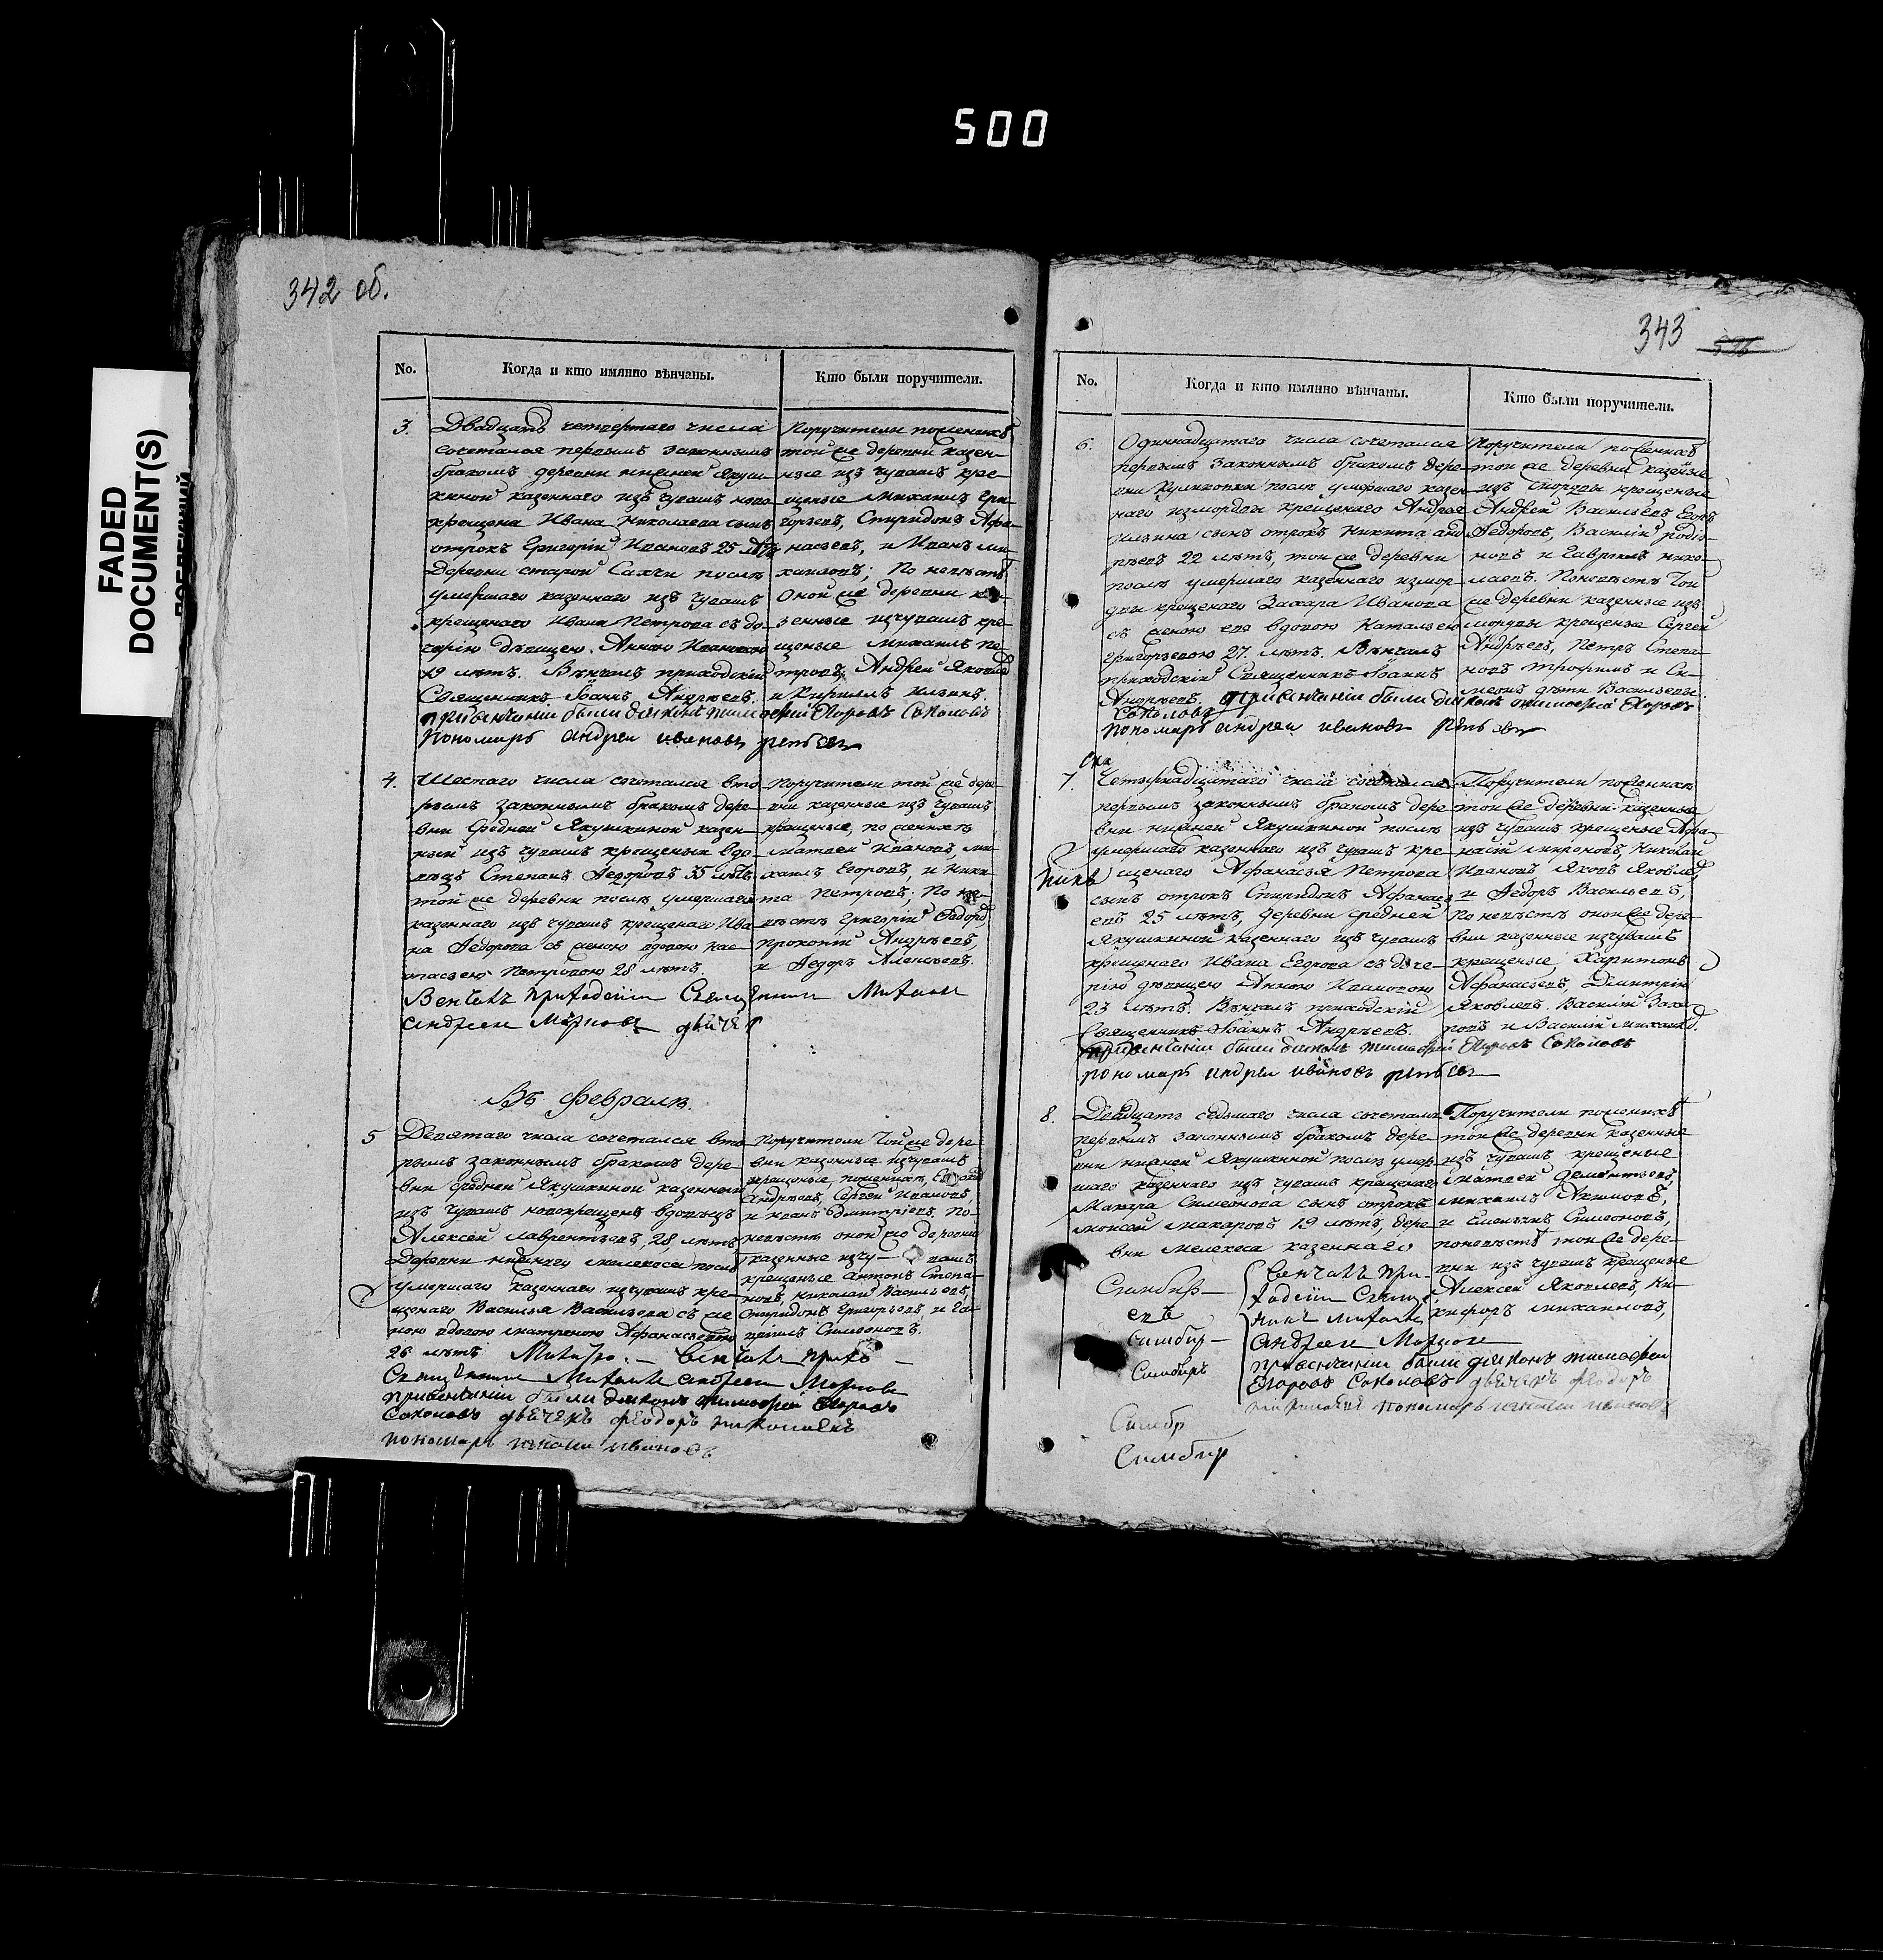 500
FADED
DOCUMENT(S)
342 об.
No.
Когда и кто имянно вѣнчаны.
Кто были поручители.
3.
Двадцать четвертаго числа
сочетался первымъ законнымъ
бракомъ деревни нижней Якуш-
киной казеннаго изъ чувашъ ново
крещена Ивана Николаева сынъ
отрокъ Григорій Ивановъ 25 лѣтъ
деревни старой Сахчи послѣ
умершаго казеннаго изъ чувашъ
крещенаго Ивана Петрова съ до-
черію дѣвицею Анною Ивановою
19 лѣтъ. Вѣнчалъ приходскій
Священникъ Іоаннъ Андреевъ.
при венчаніи были діяконъ тимофей Егоровъ Соколовъ
пономарь андрей ивановъ
Поручители поженихѣ
той же деревни казен-
ные изъ чувашъ кре-
щеные Михаилъ Гри-
горьевъ, Спиридонъ Афа-
насьевъ, и Иванъ ми-
хаиловъ; По невѣстѣ
Оной же деревни ка-
зенные изчувашъ кре-
щеные Михаилъ Пе-
тровъ, Андрей Яковлевъ
и Кирилъ Ильинъ.
4.
Шестаго числа сочетался вто-
рымъ законнымъ бракомъ дере-
вни Средней Якушкиной казен-
ный изъ чувашъ крещеный вдо-
вецъ Степанъ Федоровъ 35 лѣтъ
той же деревни послѣ умершаго
казеннаго изъ чувашъ крещенаго Ива-
на Федорова съ женою вдовою Нас-
тасьею Петровою 28 лѣтъ.
Венчалъ приходскій Священникъ
андреи
Поручители той же дере-
вни казенные изъ чувашъ
крещеные, по женихѣ
Матвей Ивановъ, ми-
хаилъ Егоровъ, и Ники-
та Петровъ; По не-
вѣстѣ Григорій Федоровъ
прокопій Андреевъ,
и Федоръ Алексѣевъ.
Въ Февралѣ.
5
Девятаго числа сочетался вто-
рымъ законнымъ бракомъ дере-
вни средней Якушкиной казенной
изъ чувашъ новокрещенъ вдовецъ
Алексей Лаврентьевъ, 28, лѣтъ
Деревни нижняго мелекеса послѣ
умершаго казеннаго изчувашъ кре-
щенаго Василья Васильева съ же-
ною вдовою матреною Афанасьевою
26 лѣтъ
венчалъ прихо-
андреи
привенчаніи были діяконъ тимофей Егоровъ
Соколовъ дьячекъ феодоръ николаевъ
пономарь ивановъ
поручители той же дере-
вни казенные изчувашъ
крещеные, поженихѣ,
Андреевъ, Сергей Ивановъ,
и иванъ дмитріевъ. По-
невѣстѣ оной же деревни
казенные изчу-вашъ
крещеные Антонъ Степа-
новъ, Николай Васильевъ,
Спиридонъ Григорьевъ, и Га-
вріилъ Симеоновъ.
343
No.
Когда и кто имянно вѣнчаны.
Кто были поручители.
6.
Одиннадцатаго числа сочетался
первымъ законнымъ бракомъ дере-
вни Куликовки послѣ умершаго казен-
наго измордвы крещенаго Андрея
Ильина сынъ отрокъ Никита анд-
реевъ 22 лѣтъ, той же деревни
послѣ умершаго казеннаго измор-
двы крещенаго Захара Иванова
съ женою его вдовою Натальею
Григорьевою 27 лѣтъ. Вѣнчалъ
приходскій Священникъ Іоаннъ
Андреевъ. при венчаніи были діяконъ тимофей Егоровъ
Соколовъ
пономарь андреи ивановъ
Поручители поженихѣ
той же деревни казенные
изъ мордвы крещеные
Андрей Васильевъ, Егоръ
Федоровъ, Василій родіо-
новъ и Гавріилъ нико-
лаевъ. Поневѣстѣ Той
же деревни казенные изъ
мордвы крещеные Сергей
Андреевъ, Петръ Степа-
новъ трофимъ и Си-
меонъ дѣти Васильевы.
7.
Четырнадцатаго числа сочетался
первымъ законнымъ бракомъ дере-
вни нижней Якушкиной послѣ
умершаго казеннаго изъ чувашъ кре-
щенаго Афанасья Петрова
сынъ отрокъ Спиридонъ Афанась-
евъ 25 лѣтъ, деревни средней
Якушкиной казеннаго изъ чувашъ
крещенаго Ивана Егорова съ доче-
рію дѣвицею Анною Ивановою
23 лѣтъ. Вѣнчалъ приходскій
Священникъ Іоаннъ Андреевъ.
при венчаніи были діяконъ тимофей Егоровъ Соколовъ
пономарь андреи ивановъ
Поручители поженихѣ
той же деревни казенные
изъ чувашъ крещеные Афа-
насій мироновъ, Николай
Ивановъ Яковъ Яковлевъ
и Федоръ Васильевъ,
По невѣстѣ оной же дере-
вни казенные изчувашъ
крещеные Харитонъ
Афанасьевъ, Дмитрій
Яковлевъ. Василій Заха-
ровъ и Василій михайловъ.
8.
Двадцать седьмаго числа сочетался
первымъ законнымъ бракомъ дере-
вни нижней Якушкиной послѣ умер-
шаго казеннаго изъ чувашъ крещенаго
Макара Симеонова сынъ отрокъ
моисей макаровъ 19 лѣтъ, дере-
вни мелекеса казеннаго
Поручители поженихѣ
той же деревни казенные
изъ чувашъ крещеные
матвей Дементьевъ,
михаилъ Якимовъ,
и Емельянъ Симеоновъ,
поневѣстѣ той же дере-
вни изъ чувашъ крещеные
Алексей Яковлевъ, Ни-
кифоръ михайловъ,
Симбир-
евъ
симбир-
Симбиръ
Симбр
Симбир
венчалъ при-
андреи
при венчаніи были діяконъ тимофеи
Егоровъ Соколовъ дьячекъ феодоръ
николаевъ пономарь ивановъ